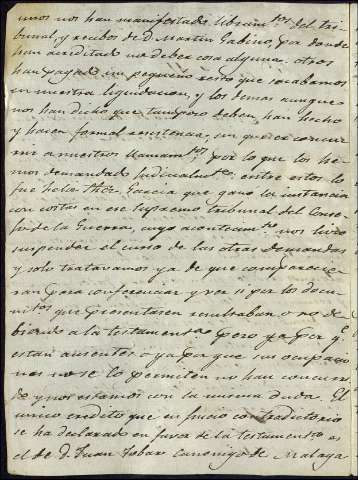 unos nos han manifestado libram.tos del tri-
bunal, y recibos de D. Martin Gabino, por donde
han acreditado no deber cosa alguna: otros
han pagado un pequeño resto que sacabamos
en nuestra liquidacion, y los demas aunque
nos han dicho que tampoco deben, han hecho
y hacen formal resistencia, en que en concur-
rir a nuestros llamam.tos, por lo que los he-
mos demandado judicialm.te, entre estos lo
fue Garcia que ganó la instancia
con costas en ese supremo tribunal del Conse-
jo de la Guerra, cuyo acontecim.to nos hizo
suspender el curso de las otras demandas
y solo tratavamos ya de que comparecie-
ran para conferenciar y ver si por los docu-
m.tos que presentasen resultaban o no de-
biendo a la testamentª pero ya por q.e
estan ausentes o ya por que sus ocupacio-
nes no se lo permiten no han concurri-
do y nos estamos con la misma duda. El
unico credito que en juicio contradictorio
se ha declarado en favor de la testament.ª es
el de D. Juan Tobar canonigo de Malaga